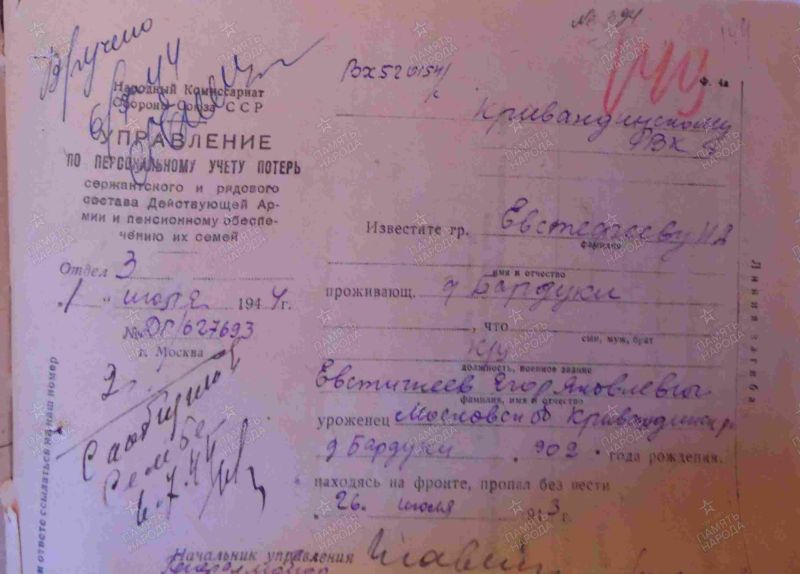 Вручено
6/7-44
Народный Комиссариат
Обороны Союза ССР
УПРАВЛЕНИЕ
ПО ПЕРСОНАЛЬНОМУ УЧЕТУ ПОТЕРЬ
сержантского и рядового
состава Действующей Ар-
мии и пенсионному обеспе-
чению их семей
Отдел 3
"1" июля 1944 г.
№
г. Москва
Сообщили
семье
6.7.44
и ответе ссылаться на наш номер
Ф. 4а
Кривандинскому
РВК
Известите гр. Евстегнееву
фамилия
имя и отчество
проживающ. д Бардуки
, что
сын, муж, брат
кр
должность, военное звание
Евстигнеев Егор Яковлевич
фамилия, имя и отчество
уроженец Московск об Кривандинск р
д Бардуки 902 года рождения.
находясь на фронте, пропал без вести
"26" июля 1943 г.
Начальник управления
генерал-майор
Линия загиба
ПАМЯТЬ
НАРОДА